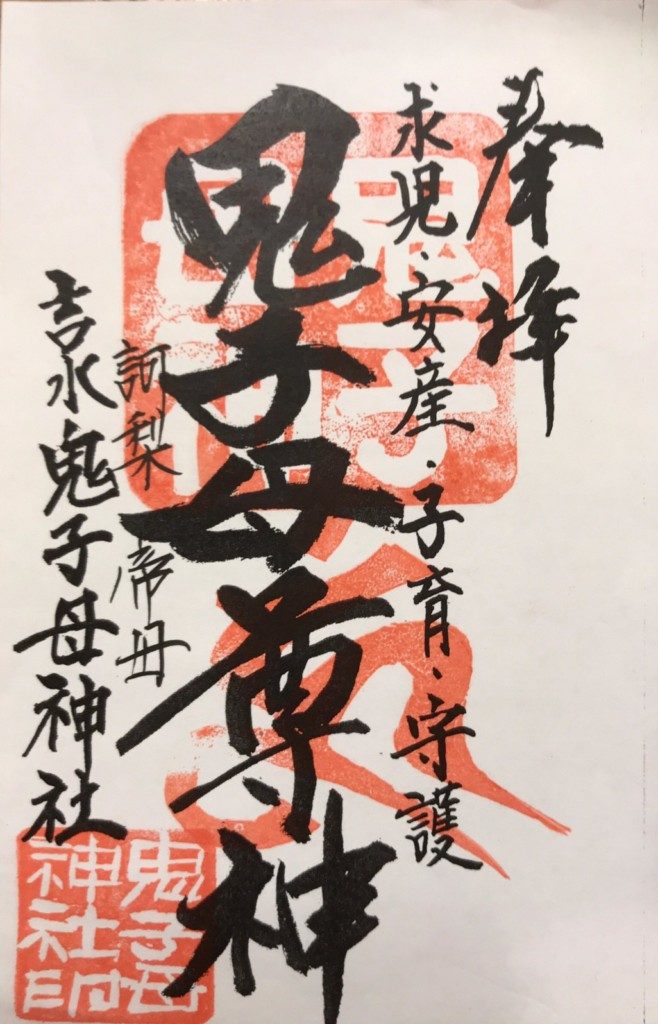 奉拝
求児・安産・子育・守護
鬼子母尊神
訶梨帝母
吉水鬼子母神社
鬼子母
神社印